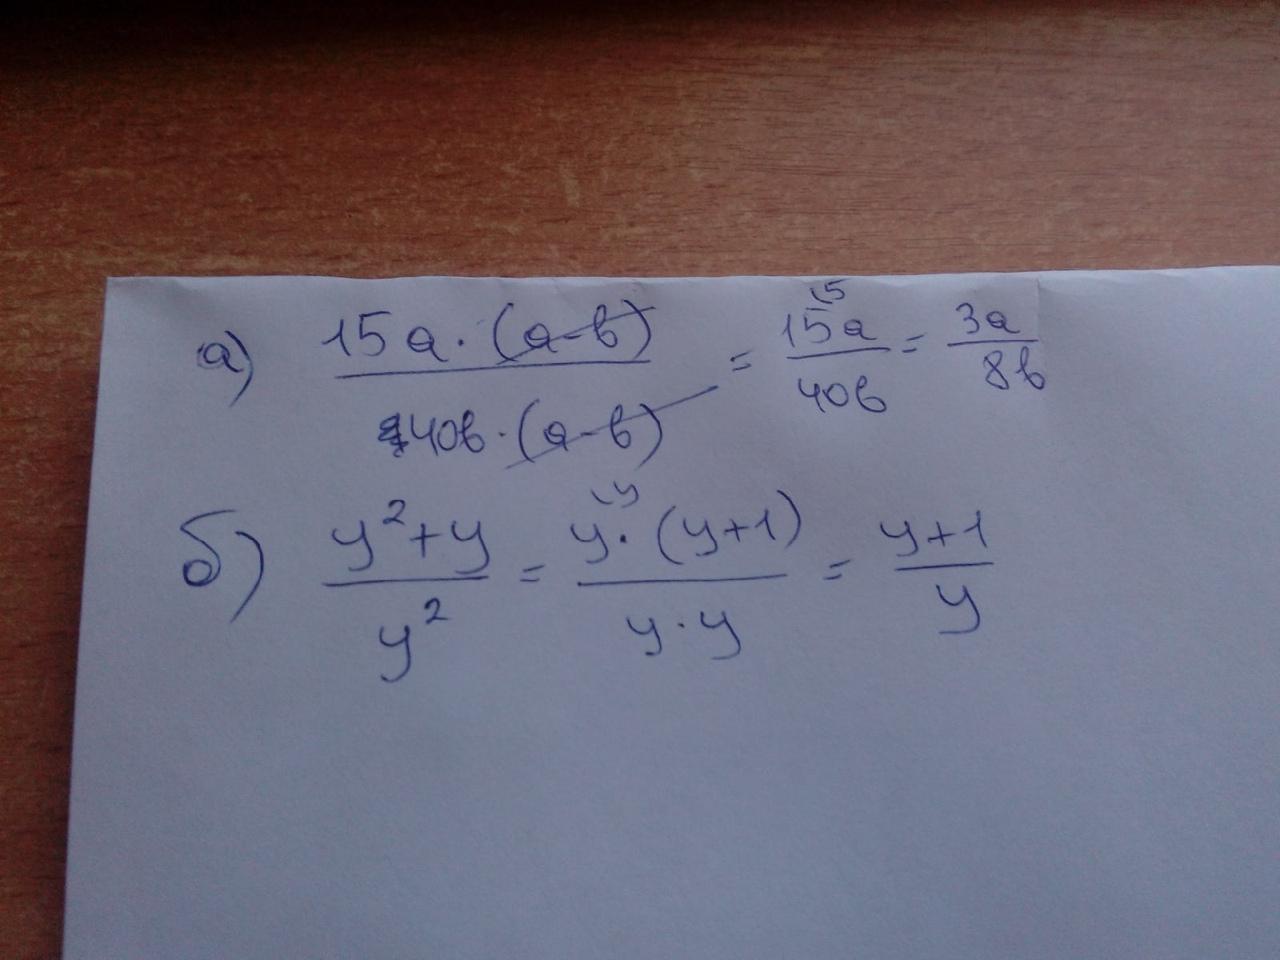 а) 15a·(a-b) / 40b·(a-b) = 15a⁽⁵ / 40b = 3a / 8b
б) y²+y / y² = y⁽ʸ·(y+1) / y·y = y+1 / y